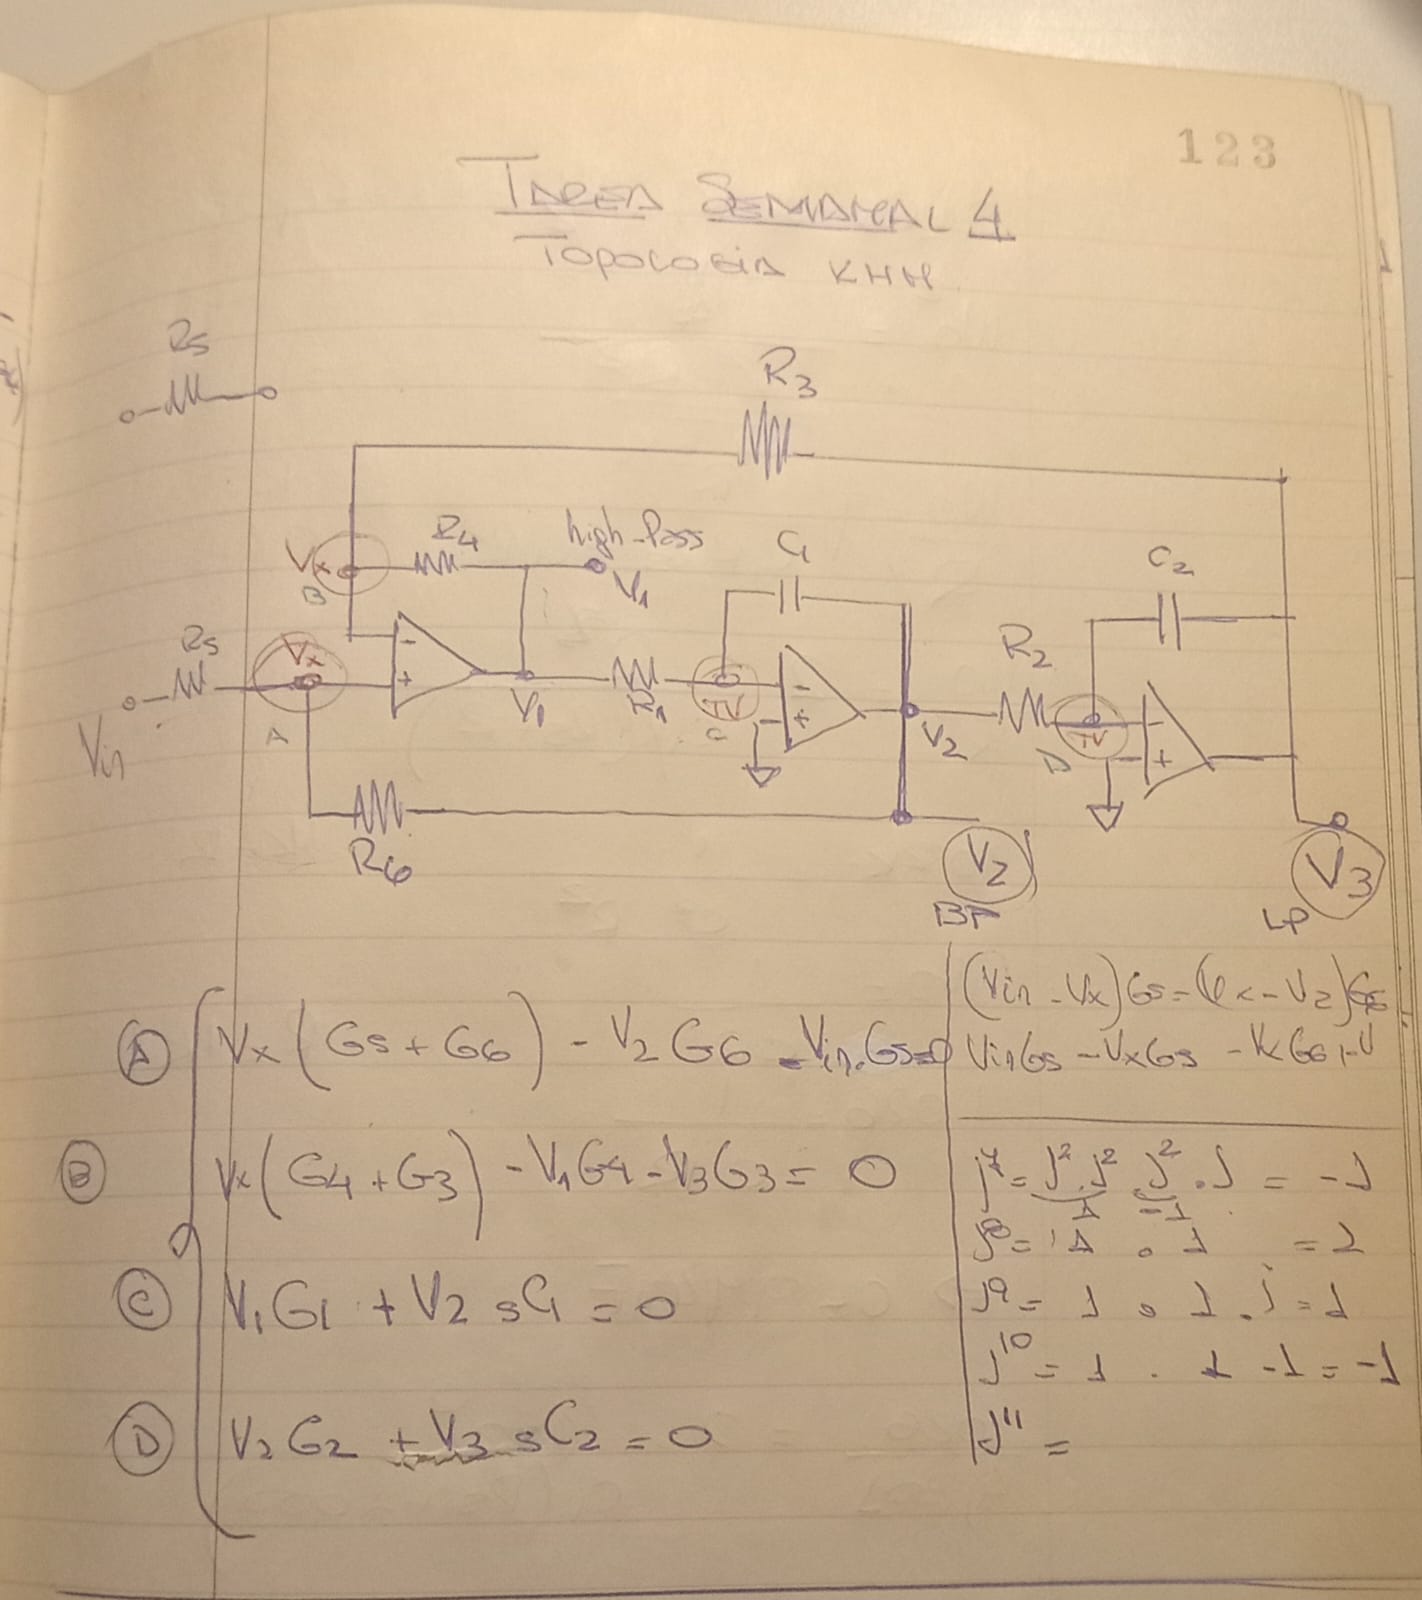 123
TAREA SEMANAL 4
TOPOLOGIA KHN
R5
R3
R4
high-Pass
V1
C1
C2
Vx
B
R5
Vx
A
Vin
V1
R1
TV
C
V2
R2
TV
D
R6
V2
BP
V3
LP
(A) Vx (G5 + G6) - V2 G6 - Vin.G5=0
(B) Vx (G4 + G3) - V1G4 - V3G3 = 0
(C) V1G1 + V2 sC1 = 0
(D) V2G2 + V3 sC2 = 0
(Vin - Vx)G5 = (Vx - V2)G6
VinG5 - VxG5 - VxG6
J7 = J2.J2.J2.J = -J
1 -1
J8 = 1 . 1 = 1
J9 = 1 . 1 . j = 1
J10 = 1 . 1 -1 = -1
J11 =